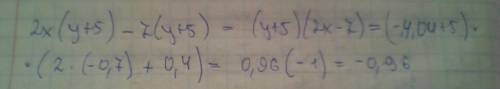 2x(y+5) - 7(y+5) = (y+5)(2x-7) = (-4,04+5)·
·(2·(-0,7) + 0,4) = 0,96(-1) = -0,96